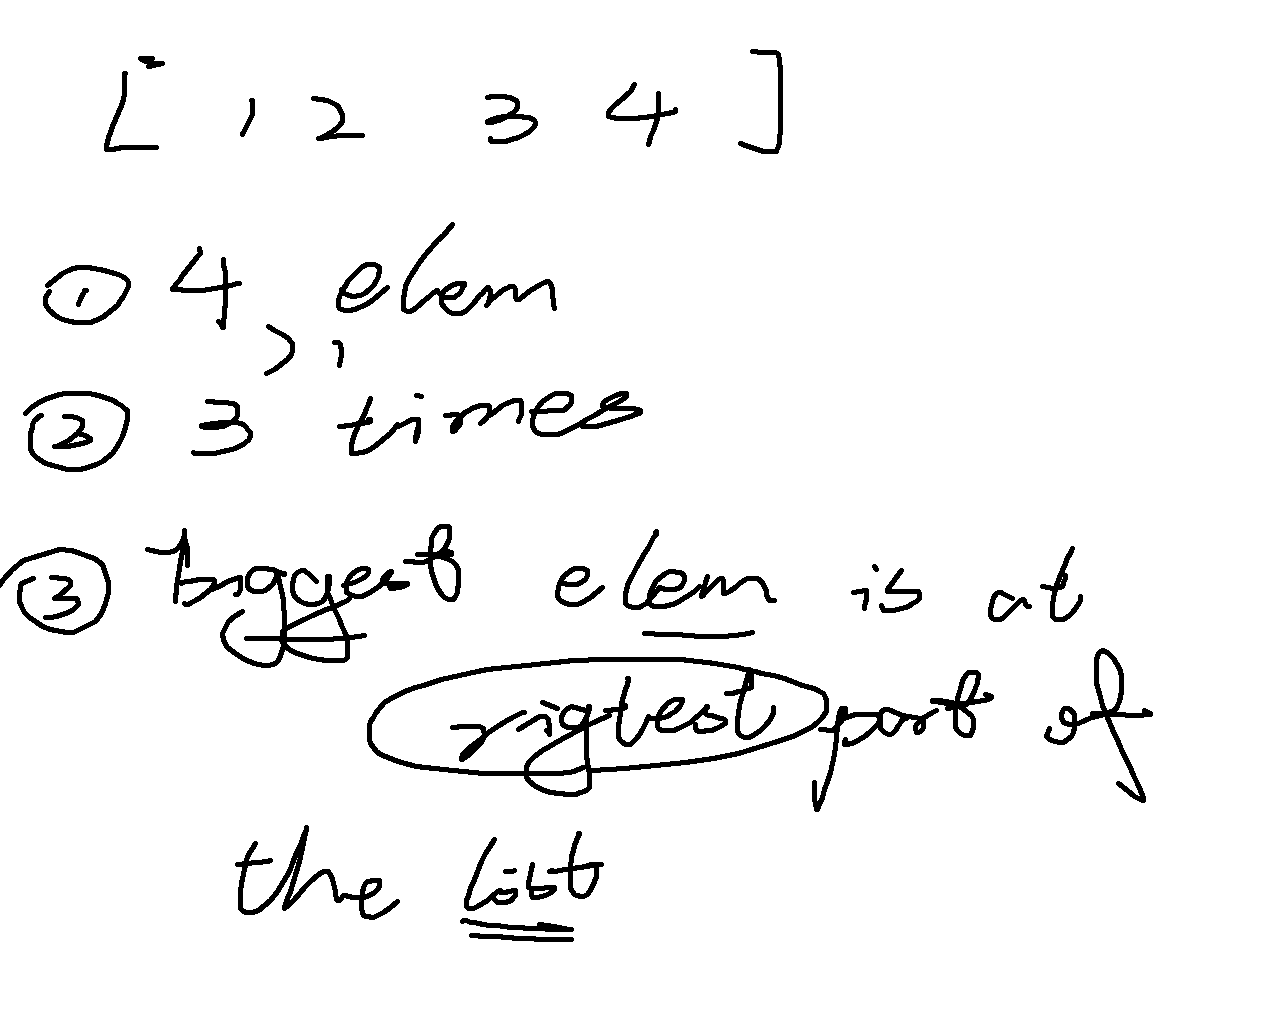 [ 1 2 3 4 ]
① 4 elem
> 1
② 3 times
③ biggest elem is at
rigtest part of
the list